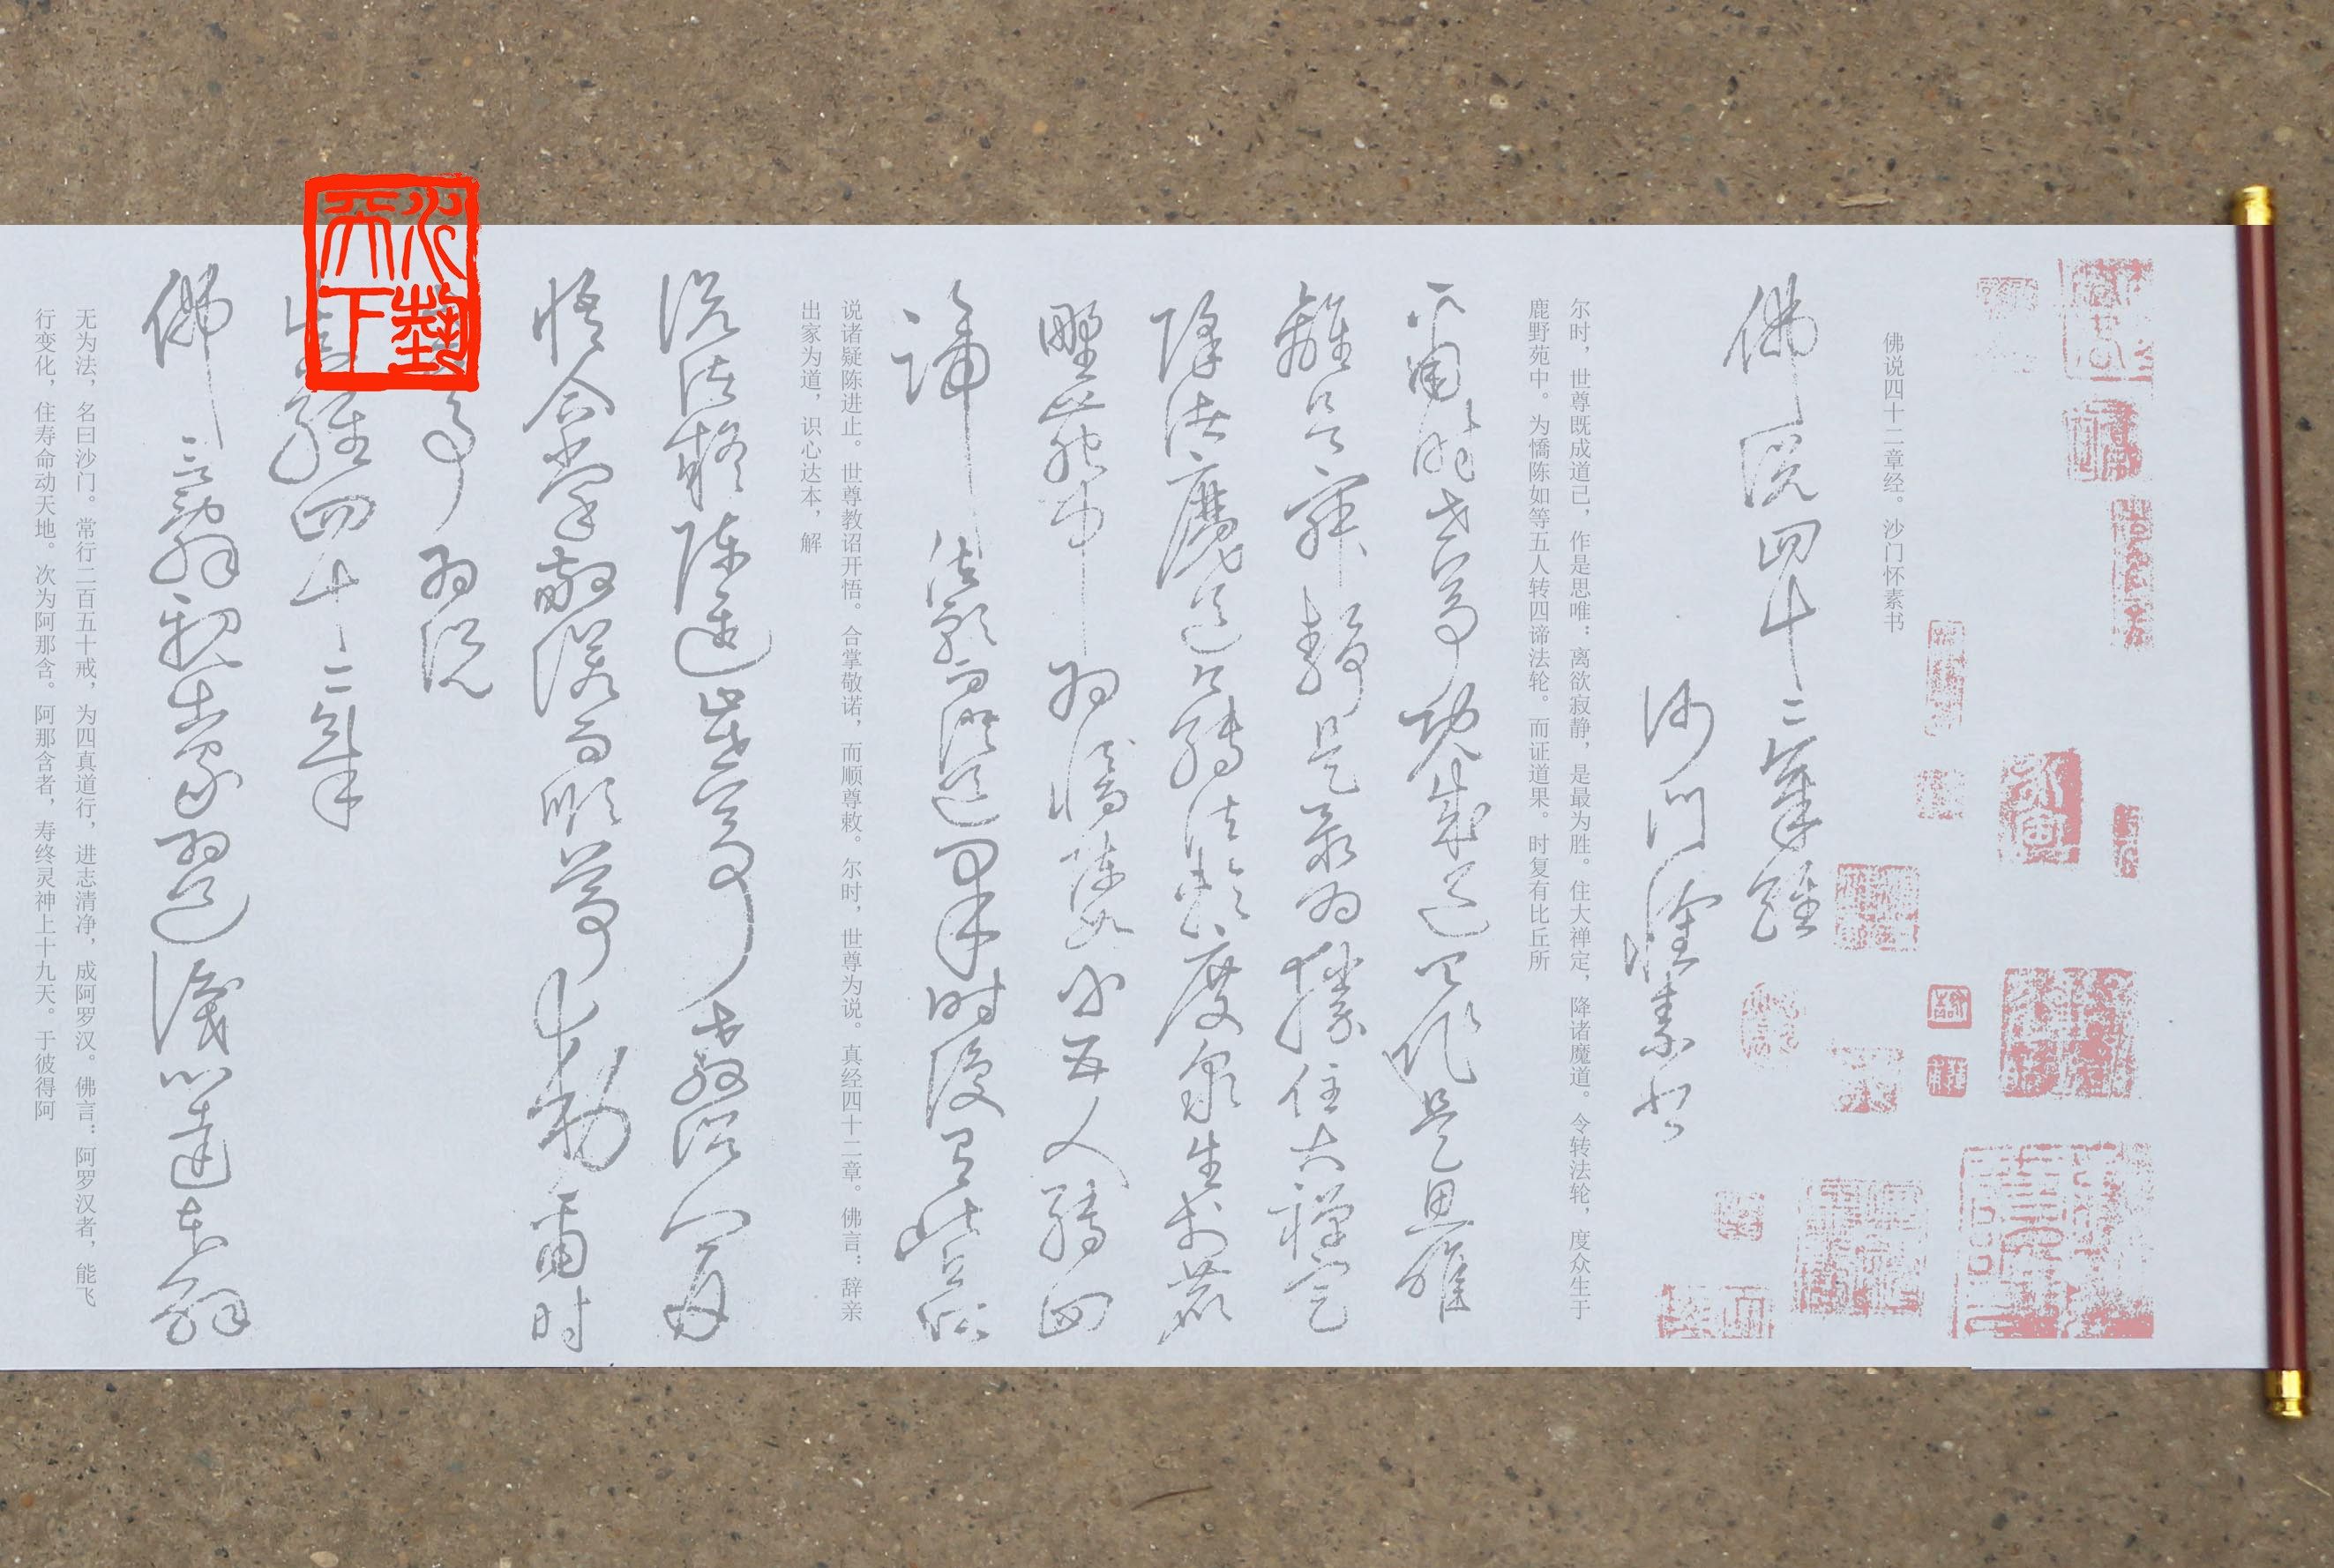 佛说四十二章经。沙门怀素书
佛說四十二章經
沙門懷素書
尔时，世尊既成道已，作是思唯：离欲寂静，是最为胜。住大禅定，降诸魔道。令转法轮，度众生于
鹿野苑中。为憍陈如等五人转四谛法轮。而证道果。时复有比丘所
爾時世尊既成道已作是思惟
離欲寂靜是最為勝住大禪定
降諸魔道令轉法輪度眾生於鹿
野苑中為憍陳如等五人轉四
諦法輪而證道果時復有比丘所
说诸疑陈进止。世尊教诏开悟。合掌敬诺，而顺尊敕。尔时，世尊为说。真经四十二章。佛言：辞亲
出家为道，识心达本，解
說諸疑陳進止世尊教詔開
悟合掌敬諾而順尊敕爾時
尊為說
真經四十二章
佛言辭親出家為道識心達本解
无为法，名曰沙门。常行二百五十戒，为四真道行，进志清净，成阿罗汉。佛言：阿罗汉者，能飞
行变化，住寿命动天地。次为阿那含。阿那含者，寿终灵神上十九天。于彼得阿
天下